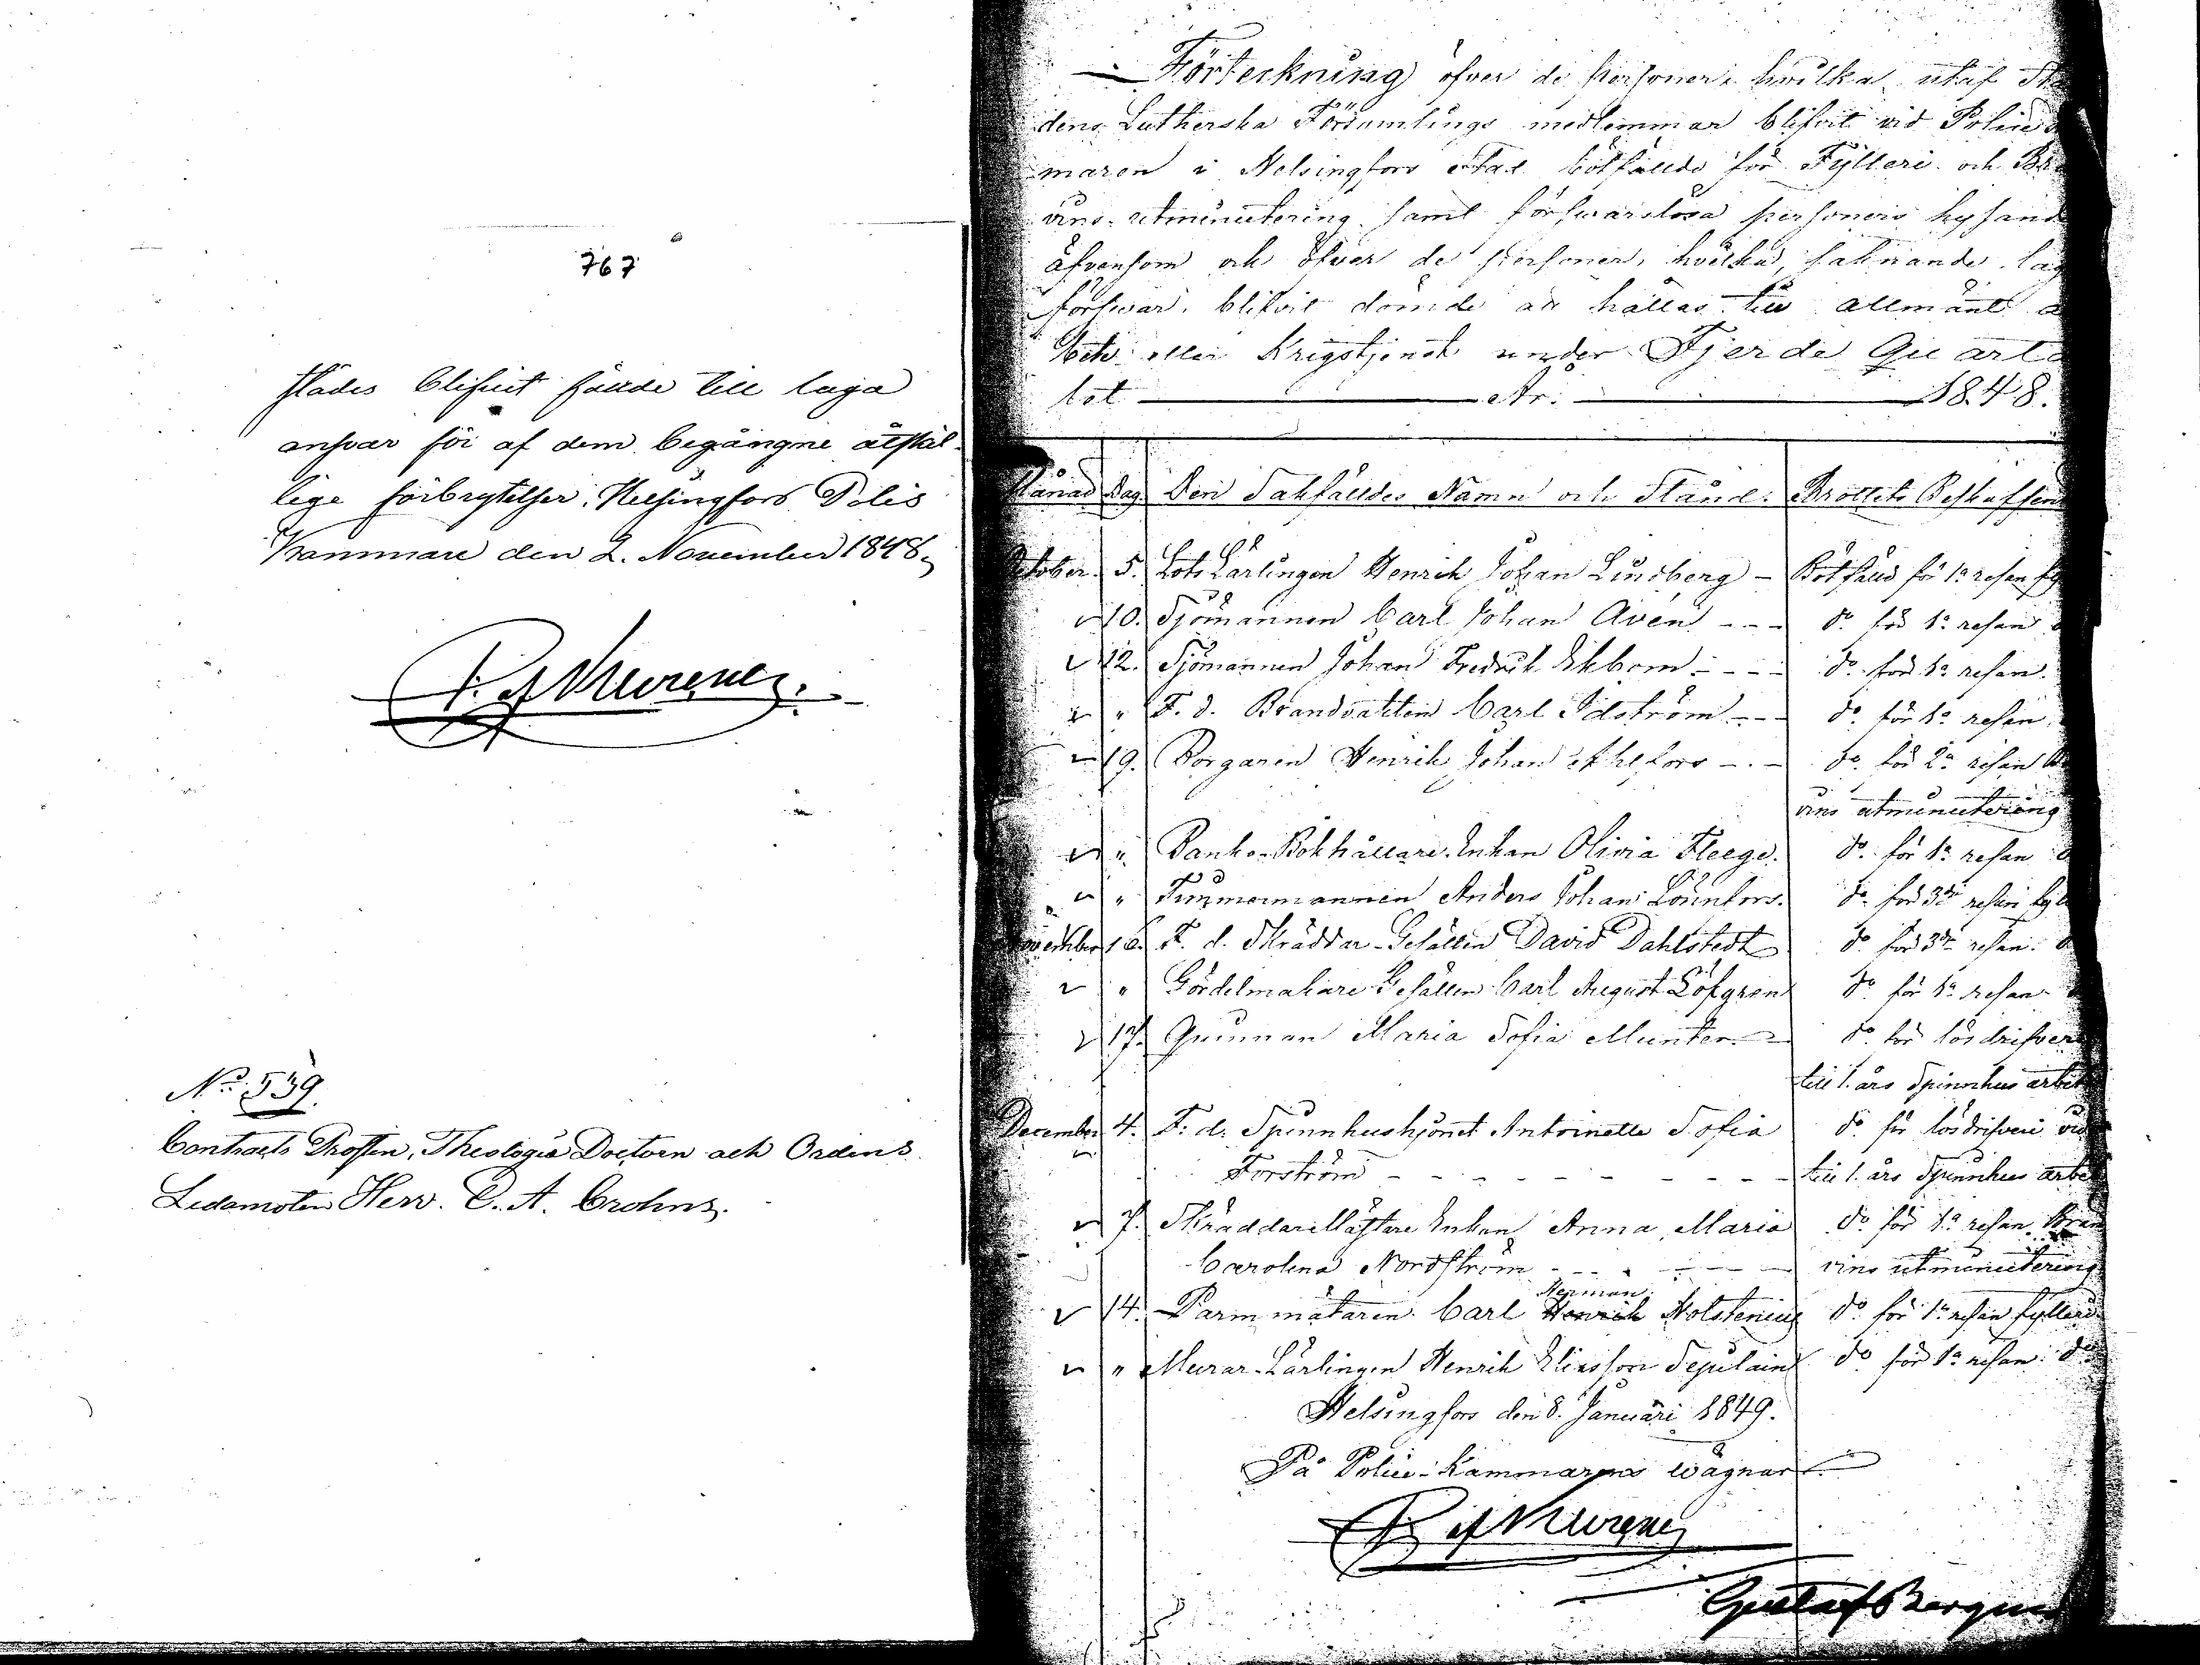 767
stådes blifvit fällde till laga
ansvar för af dem begångne åtskil-
lige förbrytelser. Helsingfors Polis
Kammare den 2. November 1848.
No. 539.
Contracts Prosten, Theologiæ Doctorn och Ordens
Ledamoten Herr C. A. Crohns.
Förteckning öfver de personer, hvilka utaf Sta
dens Lutherska Församlings medlemmar blifvit vid Police
maren i Helsingfors Stad bötfällde för Fylleri och Brä
vins utminutering samt försvarslösa personers hysand
äfvensom och öfver de personer, hvilka, saknande lag
försvar, blifvit dömde att hållas till allmänt a
bete eller Krigstjenst under Fjerde Quarta
let År: 1848.
Månad Dag Den Sakfälldes Namn och Stånd. Brottets Beskaffen
October. 5. Lots Lärlingen Henrik Johan Lindberg – Bötfälld för 1a resan fy
" 10. Sjömannen Carl Johan Aven --- do för 1a resan d
" 12. Sjömannen Johan Fredrik Ekbom --- do för 1a resan.
" " F. d. Brandvakten Carl Idström --- do för 1a resan
" 19. Borgaren Henrik Johan Ahlfors --- do för 2a resan B
vins utminutering
" " Banko-Bokhållare Enkan Olivia Fleege. do för 1a resan d
" " Timmermannen Anders Johan Lönnfors. do för 3dje resan fyl
November 16. F. d. Skräddar-Gesällen David Dahlstedt do för 3dje resan. d
" " Gördelmakare Gesällen Carl August Löfgren do för 1a resan
" 17. Qvinnan Maria Sofia Munter. – do för lösdrifver
till 1. års Spinnhus arbet
December 4. F. d. Spinnhushjonet Antoinette Sofia do för lösdrifveri
Forström - - - - - - - - - till 1. års Spinnhus arbe
" 7. Skräddare Mästare Enkan Anna Maria do för 1a resan Brän
Carolina Nordström - - - - - vins utminutering
Herman
" 14. Parmmätaren Carl Henrik Holstenius do för 1a resan fylleri
" " Murar-Lärlingen Henrik Eliasson do för 1a resan. do
Helsingfors den 8. Januari 1849.
På Police-Kammarens wägnar
Gustaf